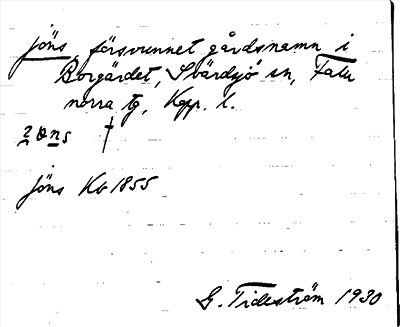 jöns, försvunnet gårdsnamn i
Borgärdet, Svärdsjö sn, Falu
norra tg, Kopp. l.
jöns Kb 1855
G. Tideström 1930